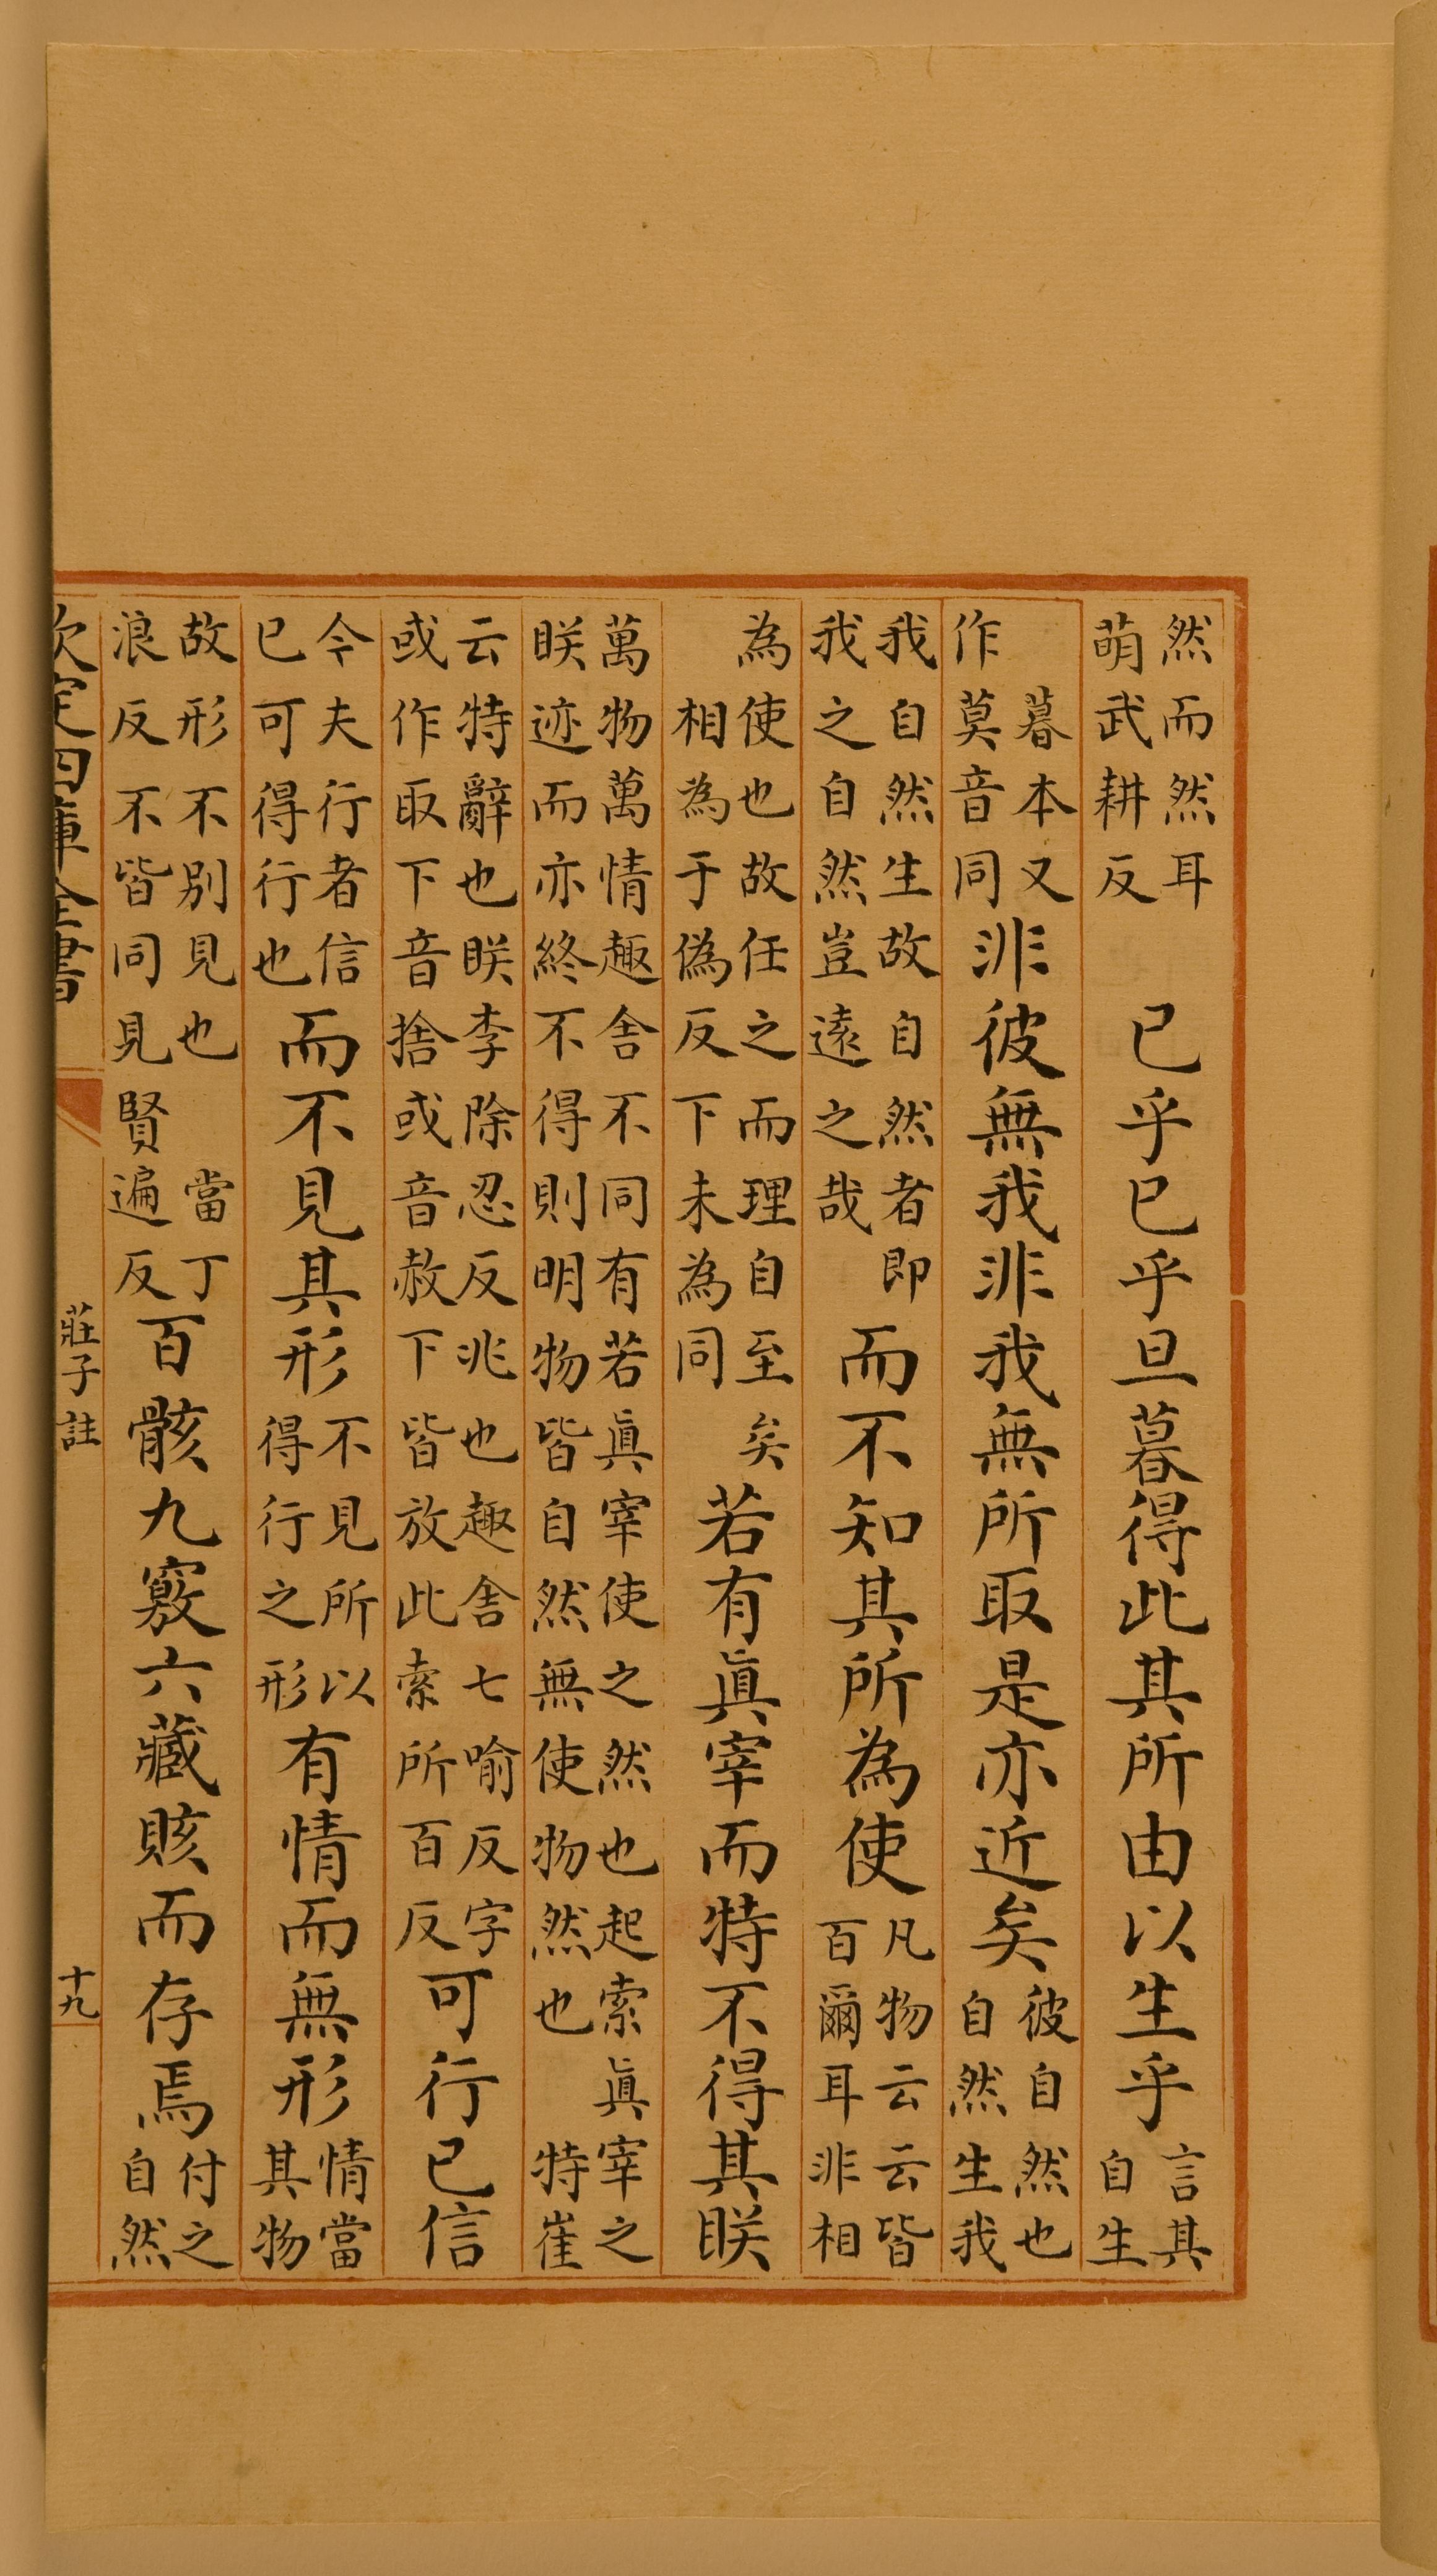 然而然耳
萌武耕反
已乎已乎旦暮得此其所由以生乎
言其
自生
暮本又
作莫音同
非彼無我非我無所取是亦近矣
彼自然也
自然生我
我自然生故自然者即
我之自然豈遠之哉
而不知其所為使
凡物云云皆
百爾耳非相
為使也故任之而理自至矣
相為于偽反下未為同
若有眞宰而特不得其眹
萬物萬情趣舍不同有若眞宰使之然也起索眞宰之
眹迹而亦終不得則明物皆自然無使物然也　特崔
云特辭也眹李除忍反兆也趣舍七喻反字
或作取下音捨或音赦下皆放此索所百反
可行已信
今夫行者信
已可得行也
而不見其形
不見所以
得行之形
有情而無形
情當
其物
故形不別見也　當丁
浪反不皆同見賢遍反
百骸九竅六藏賅而存焉
付之
自然
欽定四庫全書
莊子註
十九